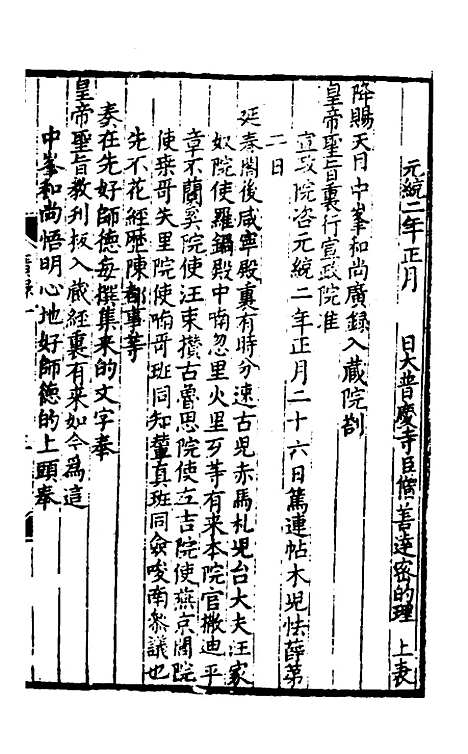 元統二年正月 日大普慶寺臣僧善達密的理 上表
降賜天目中峯和尚廣録入藏院劄
皇帝聖旨裏行宣政院准
宣政院咨元統二年正月二十六日篤連帖木児怯薛第
二日
延春閣後咸寧殿裏有時分速古児赤馬札児台大夫汪家
奴院使羅鍋殿中喃忽里火里歹等有来本院官撒迪平
章不蘭奚院使汪東攢古魯思院使立吉院使燕京閭院
使桒哥失里院使喃哥班同知輦真班同僉唆南叅議也
先不花經歴陳都事等
奏在先好師德毎撰集来的文字奉
皇帝聖旨教刋板入藏經裏有来如今為這
中峯和尚悟明心地好師德的上頭奉